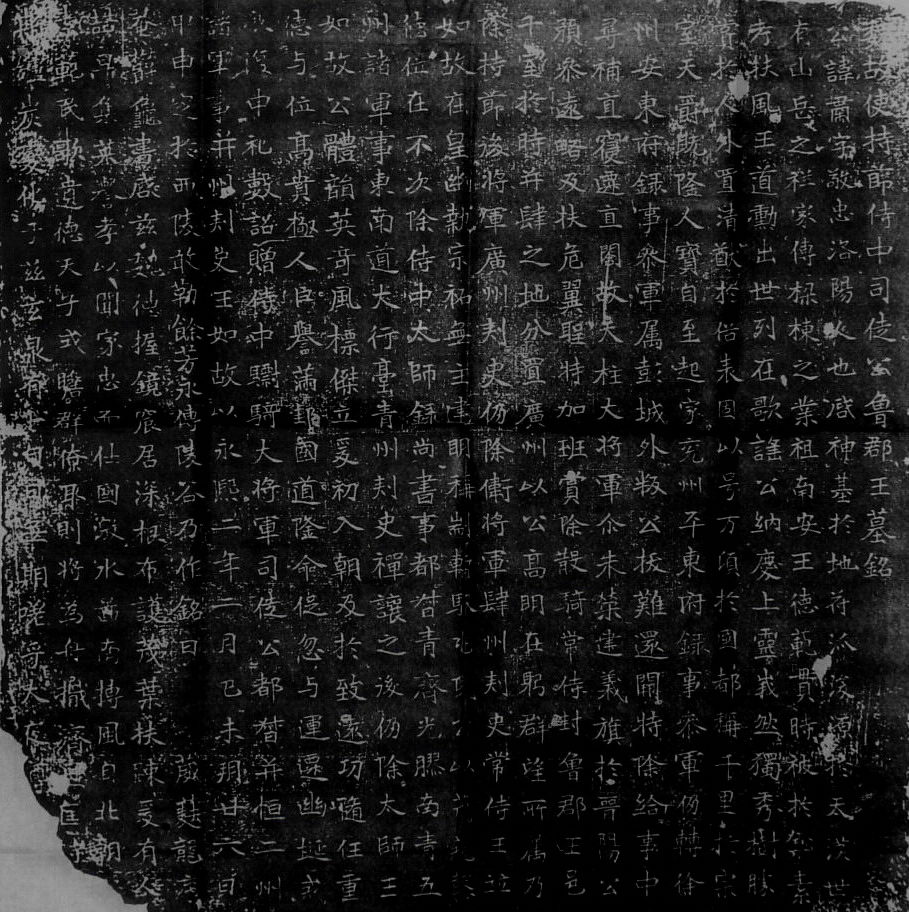 魏故使持節侍中司徒公魯郡王墓銘
公諱肅字敬忠洛陽人也感神基於地苻派浚源於天漢世
有山岳之稱家傳樑棟之業祖南安王德範貫時被於絃素
考扶風王道勳出世列在歌謠公納慶上靈峩然獨秀樹勝
賞於人外置清猷於俗表固以号万頃於國都稱千里於宗
室天爵既隆人寶自至起家兗州平東府録事參軍仍轉徐
州安東府録事參軍属彭城外叛公拔難還闕特除給事中
尋補直寢遷直閤故天柱大將軍尒朱榮建義旗於晉陽公
預參遠略及扶危翼聖特加班賞除散騎常侍封魯郡王邑
千室於時并肆之地分置廣州以公高明在躬群望所属乃
除持節後將軍廣州刾史仍除衛將軍肆州刾史常侍王竝
如故在皇幽勤宗祏無主明稱制馭以
德位在不次除侍中太師録尚書事都督青齊光膠南青五
州諸軍事東南道大行臺青州刾史禪讓之後仍除太師王
如故公體韻英奇風標傑立爰初入朝及於致遠功隨任重
德与位高貴極人臣譽滿邦國道隆命促忽与運遷幽挻
後申礼數詔贈侍中驃騎大將軍司徒公都督并恒二州
諸軍事并州刾史王如故以永熙二年二月己未朔廿六日
甲申空於西陵敢勒餘芳永傳陵谷乃作銘曰 葳蕤龍
菴藹龜書感茲德握鏡宸居深根布護茂葉扶疎爰有人
英孝以聞家忠而仕國激水啚南摶風自北朝
範民歌遺德天子或瞻群僚取則將為舟檝濟
炭于茲玄泉有白日無期嗟哥大